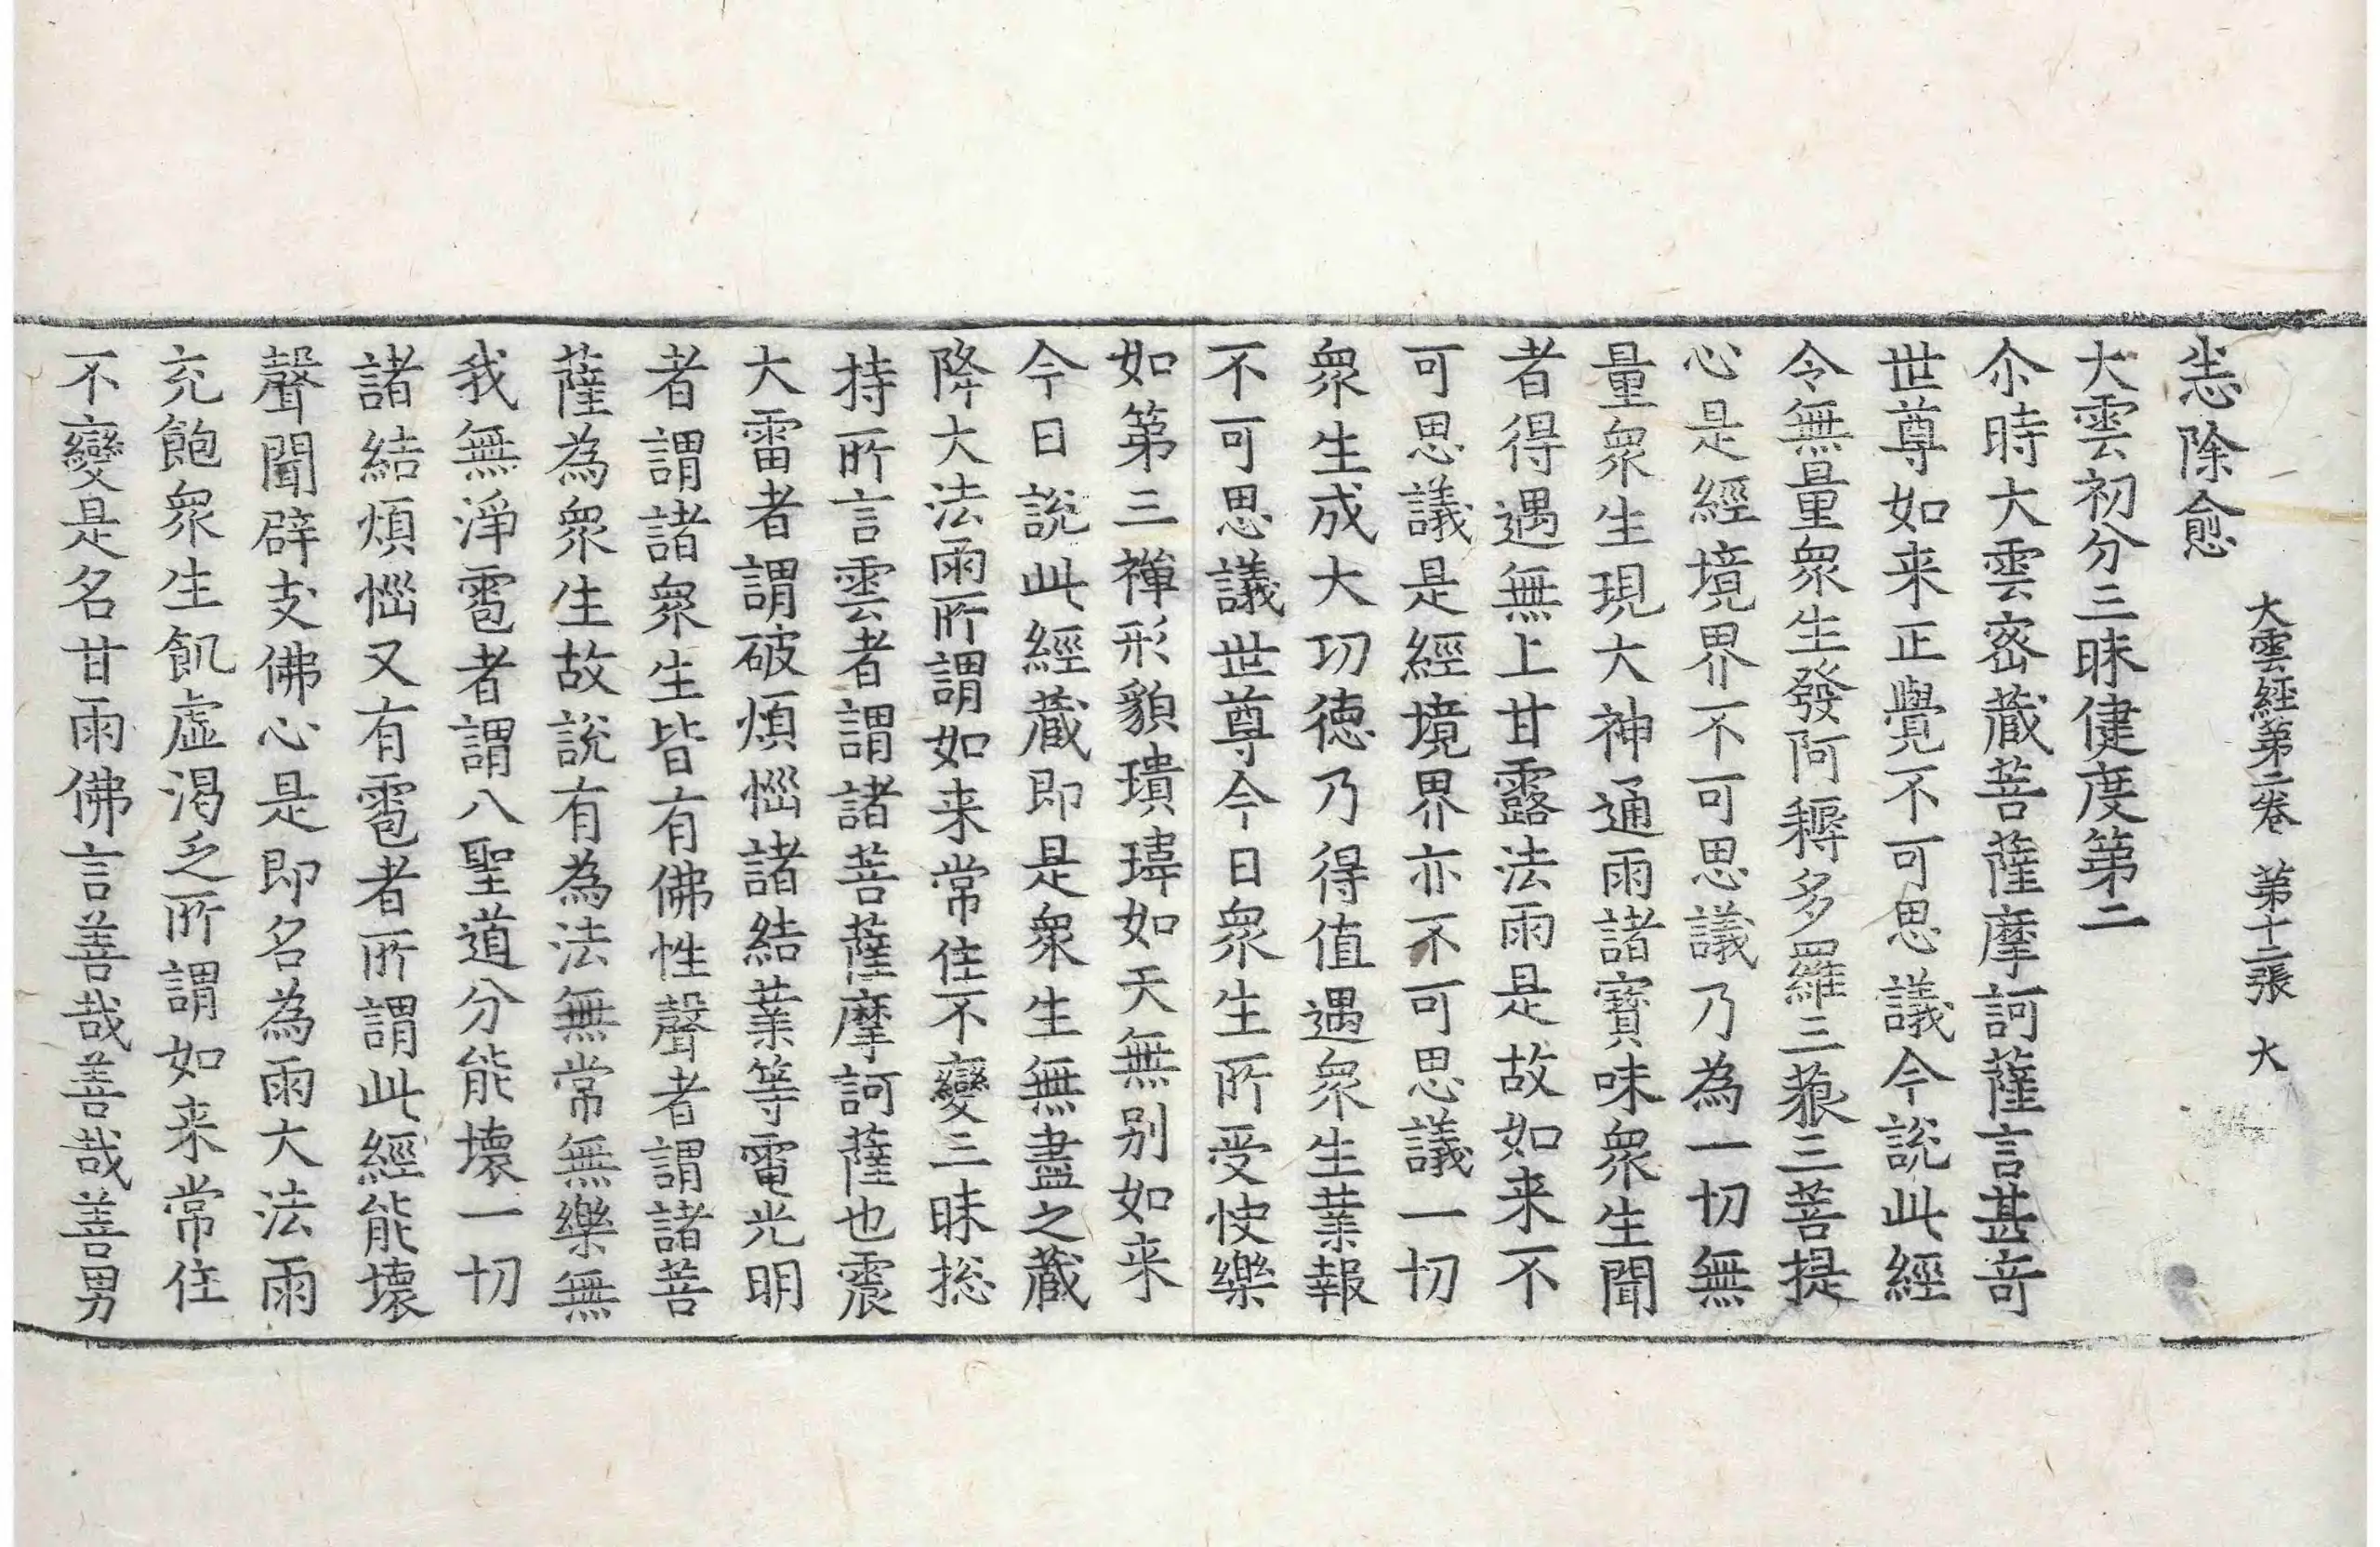 大雲經第二卷 第十二張 大
恙除愈
大雲初分三昧健度第二
尒時大雲密藏菩薩摩訶薩言甚奇
世尊如来正覺不可思議今說此經
令無量衆生發阿耨多羅三藐三菩提
心是經境界不可思議乃為一切無
量衆生現大神通雨諸寶味衆生聞
者得遇無上甘露法雨是故如来不
可思議是經境界亦不可思議一切
衆生成大功德乃得值遇衆生業報
不可思議世尊今日衆生所受快樂
如第三禪形貌瓌瑋如天無別如来
今日說此經藏即是衆生無盡之藏
降大法雨所謂如来常住不變三昧捴
持所言雲者謂諸菩薩摩訶薩也震
大雷者謂破煩惱諸結業等電光明
者謂諸衆生皆有佛性聲者謂諸菩
薩為衆生故說有為法無常無樂無
我無淨雹者謂八聖道分能壞一切
諸結煩惱又有雹者所謂此經能壞
聲聞辟支佛心是即名為雨大法雨
充飽衆生飢虛渴乏所謂如来常住
不變是名甘雨佛言善哉善哉善男